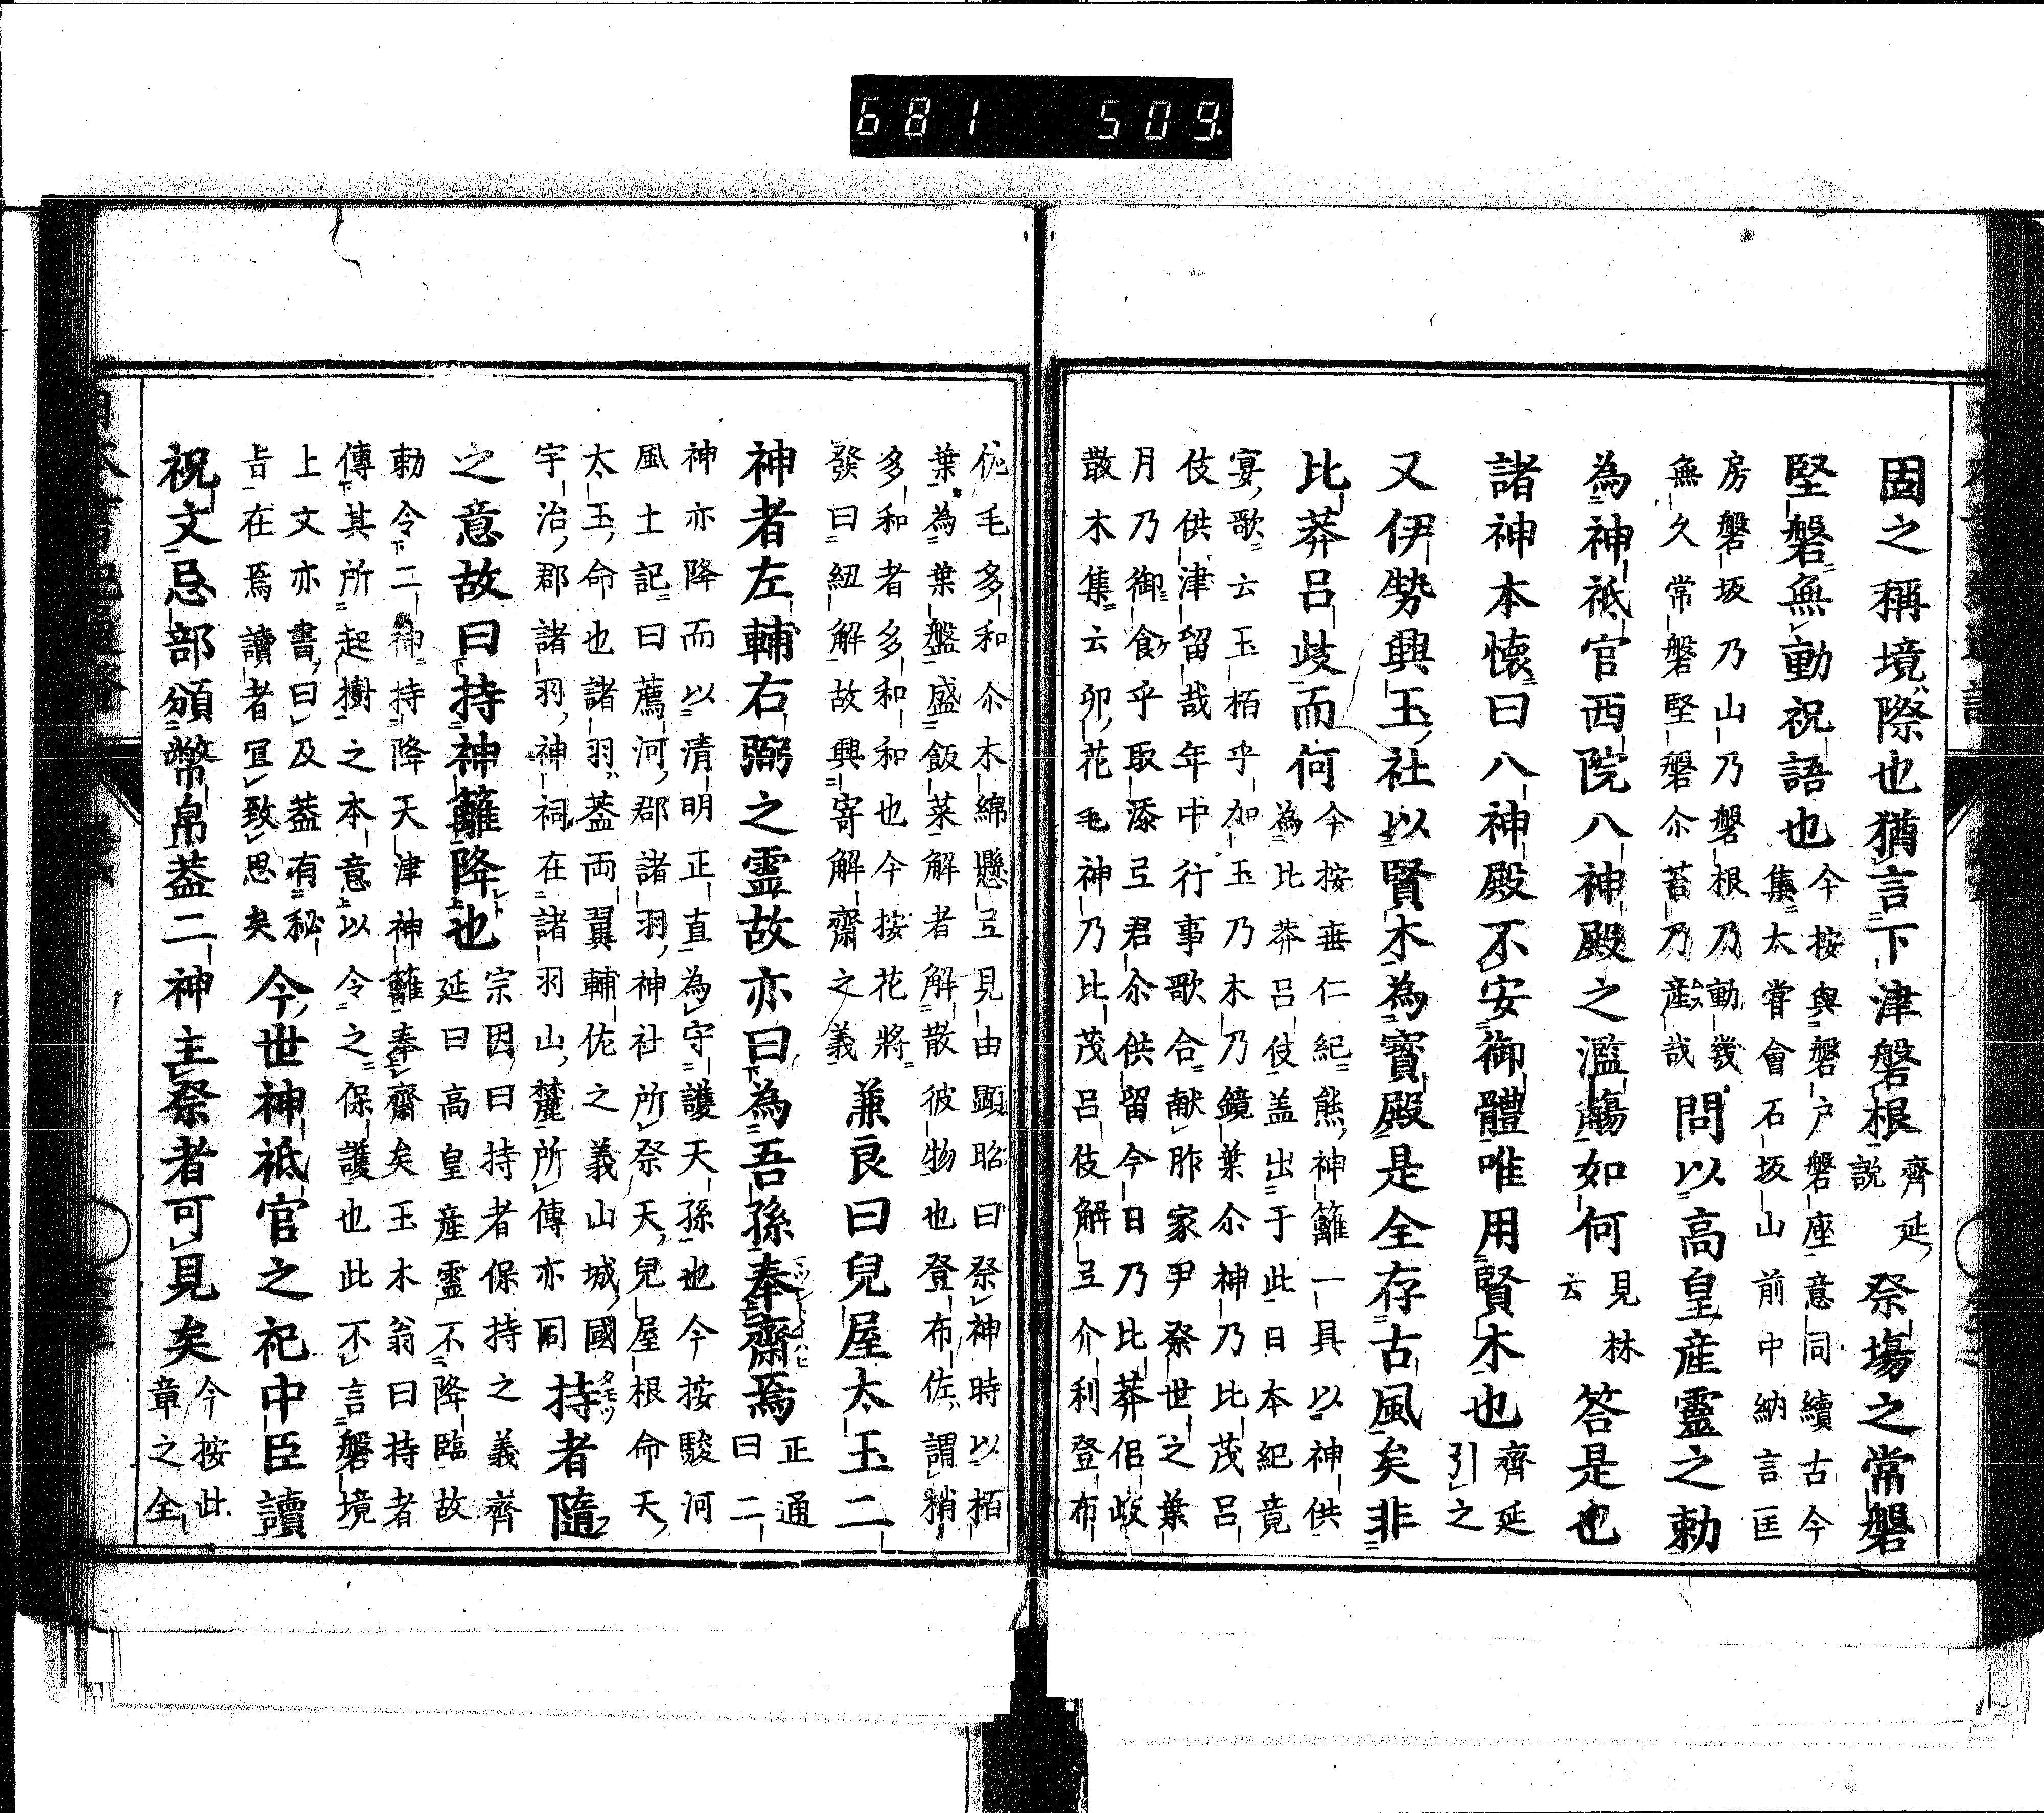 681 509
固之稱境際也猶言下津磐根
齊延
説
祭場之常磐
堅磐無動祝語也
今按與磐戸磐座意同續古今
集太甞會石坂山前中納言匡
房磐坂乃山乃磐根乃動幾
無久常磐堅磐尓苔乃産哉
問以高皇産靈之勅
為神祇官西院八神殿之濫觴如何
見林
云
答是也
諸神本懐曰八神殿不安御體唯用賢木也
齊延
引之
又伊勢興玉社以賢木為寳殿是全存古風矣非
比莽呂歧而何
今按垂仁紀熊神籬一具以神供
為比莽呂伎盖出于此日本紀竟
宴歌云玉栢乎加玉乃木乃鏡葉尓神乃比茂呂
伎供津留哉年中行事歌合献胙家尹祭世之葉
月乃御食乎取添弖君尓供留今日乃比莽侶岐
散木集云卯花毛神乃比茂呂伎解弖介利登布
佐毛多和尓木綿懸弖見由顕昭曰祭神時以栢
葉為葉盤盛飯菜解者解散彼物也登布佐謂稍
多和者多和和也今按花將
發曰紐解故興寄解齋之義
兼良曰兒屋太玉二
神者左輔右弼之霊故亦曰為吾孫奉齋焉
正通
曰二
神亦降而以清明正直為守護天孫也今按駿河
風土記曰薦河郡諸羽神社所祭天兒屋根命天
太玉命也諸羽蓋両翼輔佐之義山城國
宇治郡諸羽神祠在諸羽山麓所傳亦同
持者隨
之意故曰持神籬降也
宗因曰持者保持之義齊
延曰高皇産霊不降臨故
勅令二神持降天津神籬奉齋矣玉木翁曰持者
傳其所起樹之本意以令之保護也此不言磐境
上文亦書曰及蓋有秘
旨在焉讀者宜致思矣
今世神祇官之祀中臣讀
祝文忌部頒幣帛葢二神主祭者可見矣
今按此
章之全